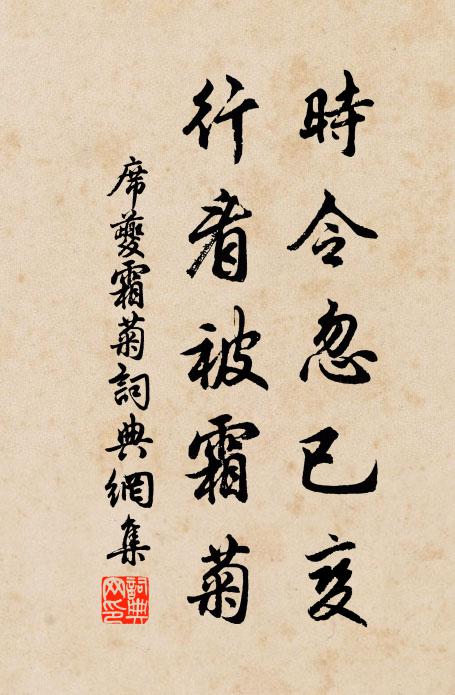 時令忽已变
行看被霜菊
席夔霜菊詞典網集
詞典网印